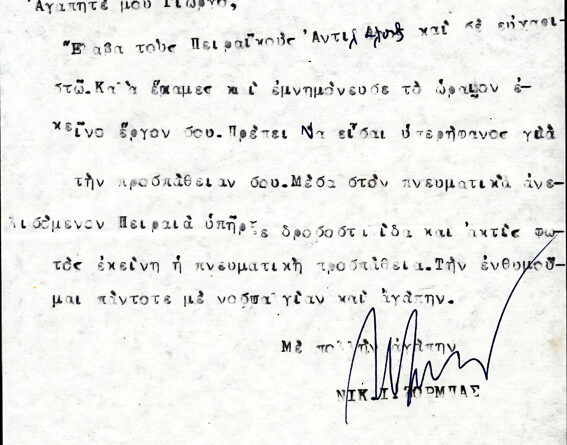 Ἀγαπητέ μου Γιῶργο,
Ἔλαβα τοὺς Πειραϊκοὺς Ἀντιλάλους καὶ σὲ εὐχαρι-
στῶ. Καλὰ ἔκαμες καὶ ἐμνημόνευσε τὸ ὡραῖον ἐ-
κεῖνο ἔργον σου. Πρέπει Να εἶσαι ὑπερήφανος γιὰ
τὴν προσπάθειαν σου. Μέσα στὸν πνευματικὰ ἀνε-
λισόμενον Πειραιὰ ὑπῆρξε δροσοστιλίδα και ἀκτὶς φω-
τὸς ἐκείνη ἡ πνευματικὴ προσπάθεια. Τὴν ἐνθυμοῦ-
μαι πάντοτε μὲ νοσταλγίαν καὶ ἀγάπην.
Μὲ πολλὴν ἀγάπην
ΝΙΚ. Ι. ΖΟΡΜΠΑΣ